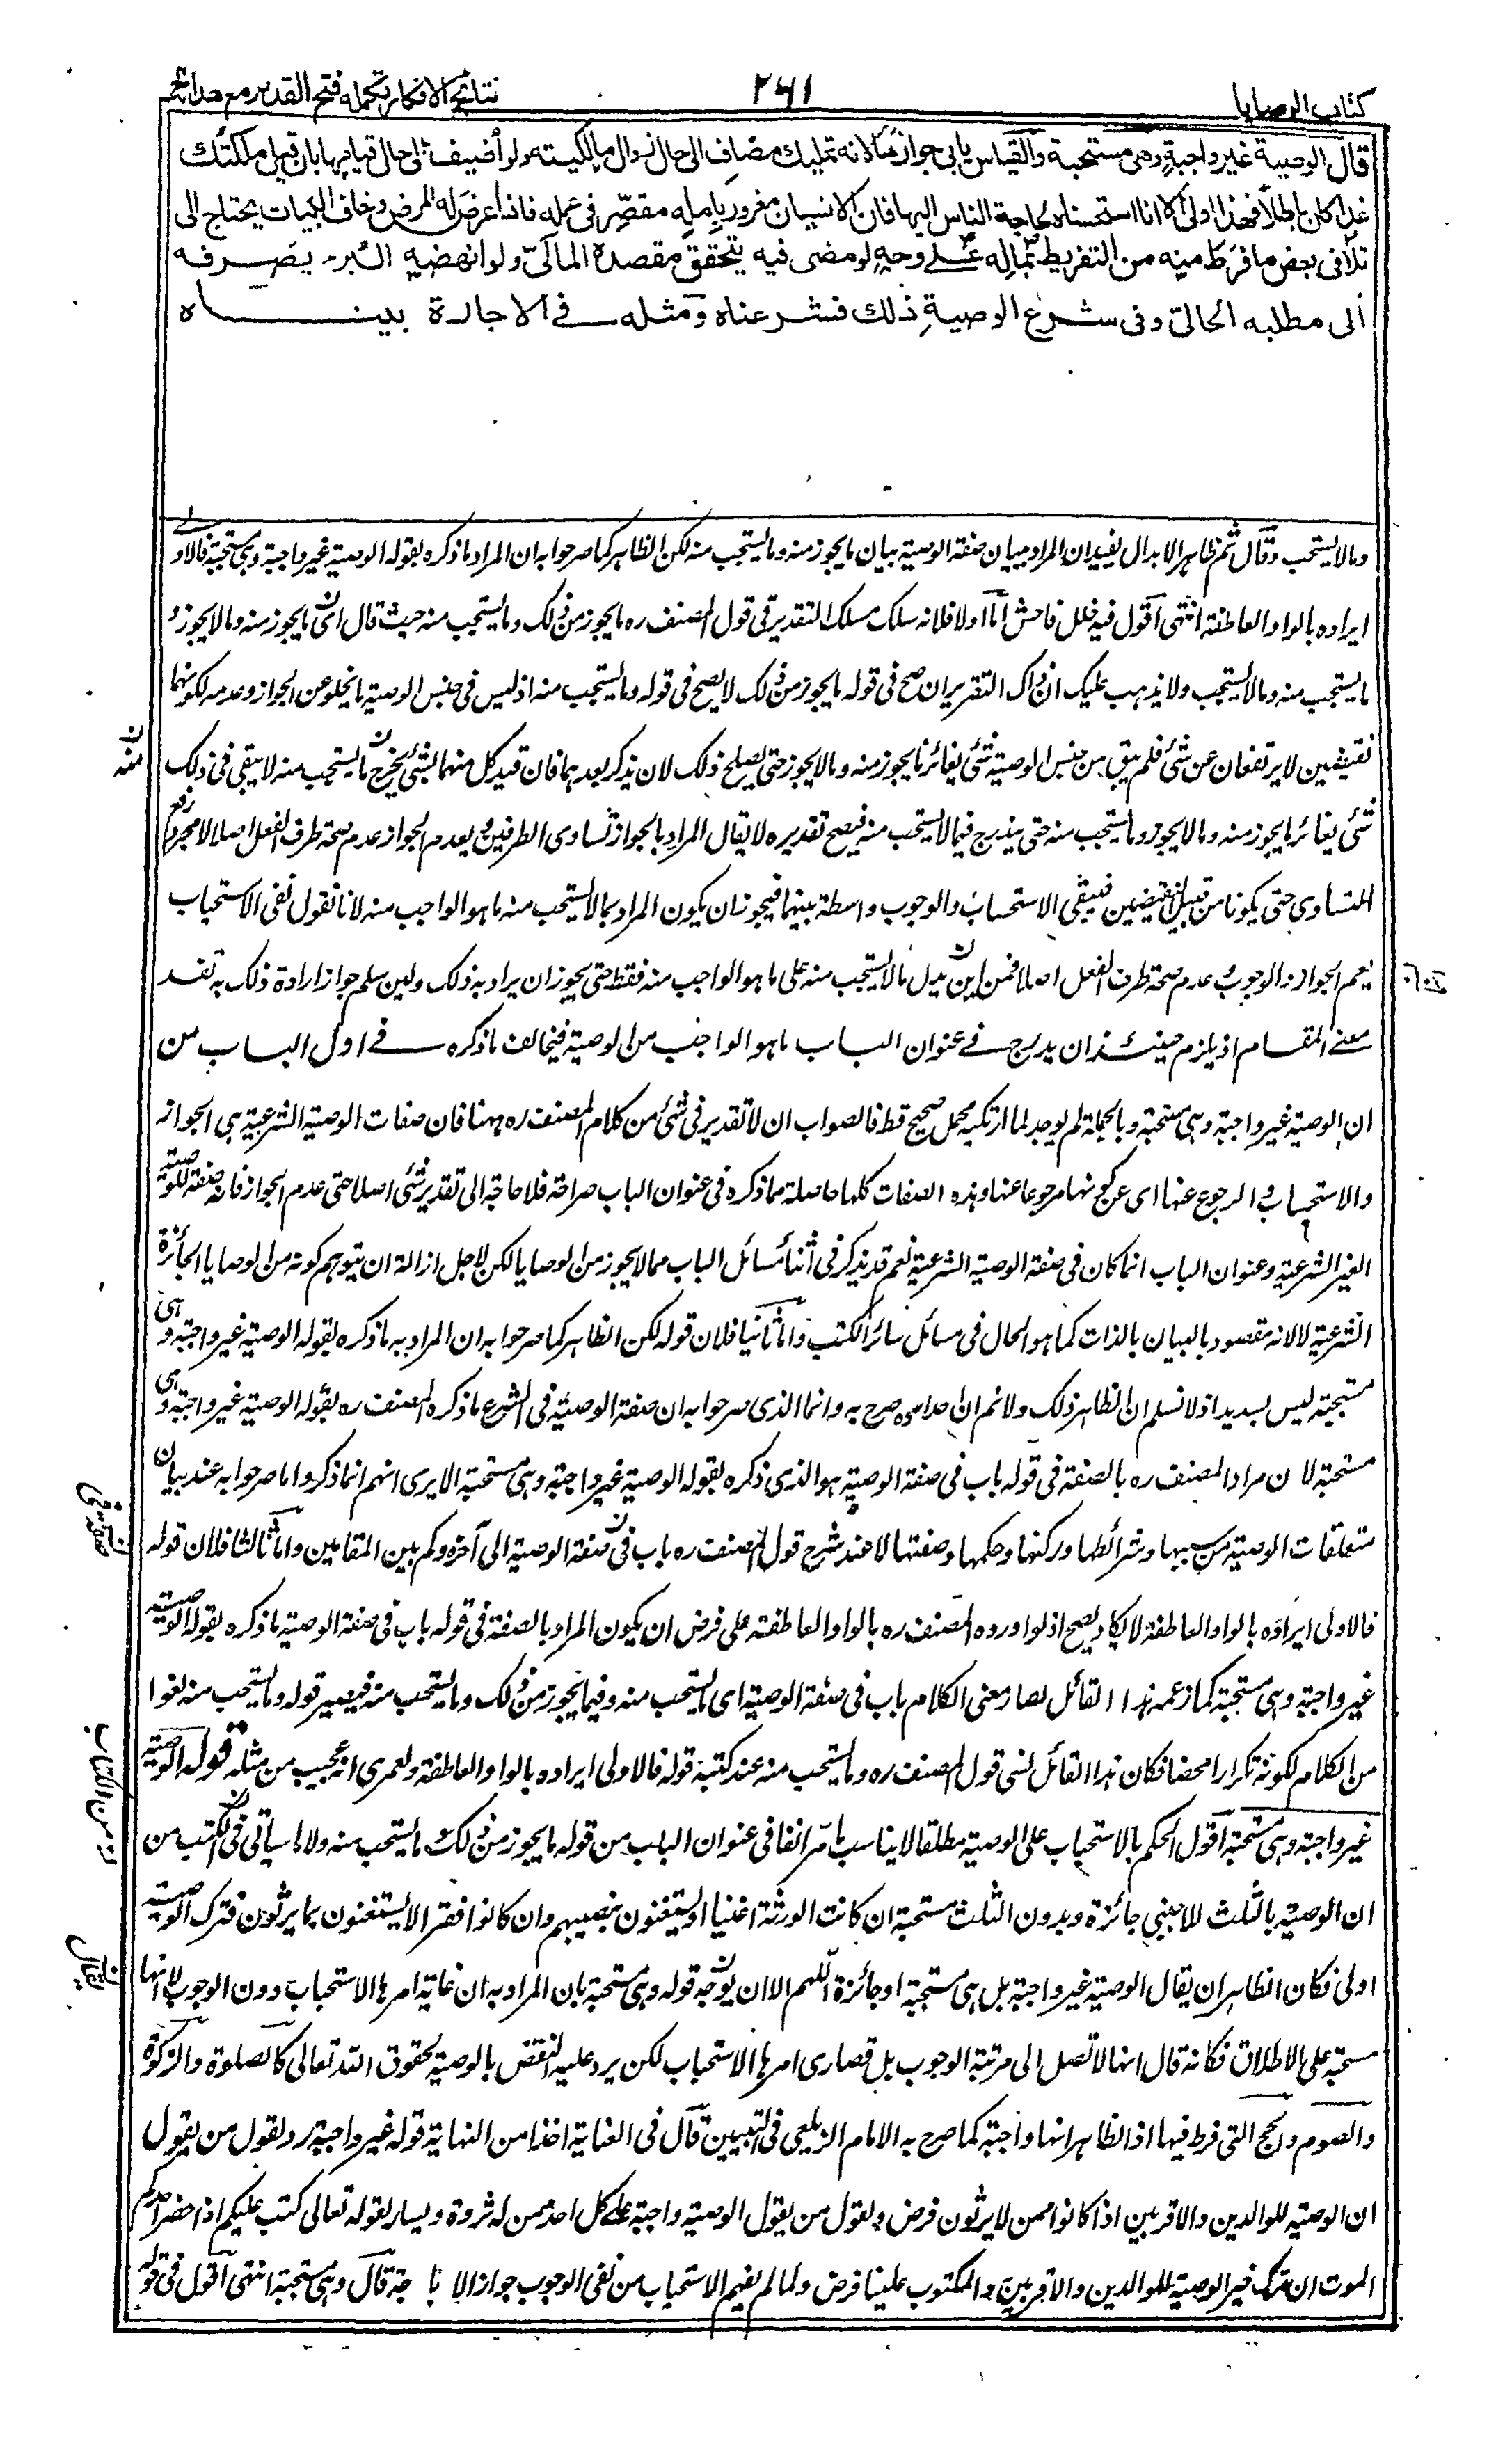 كتاب الوصايا
٢٤١
نتائج الافكار تكمله فتح القدير مع هدايہ
قال الوصية غير واجبة وهى مستحبة والقياس يأبى جوازها لانه تمليك مضاف الى حال زوال مالكيته ولو أضيف الى حال قيامها بان قيل ملكتك
غدا كان باطلا فهذا اولى الا انا استحسناه لحاجة الناس اليها فان الانسان مغرور بامله مقصر فى عمله فاذا عرض له المرض وخاف البيات يحتاج الى
تلافى بعض ما فرط منه من التفريط بماله على وجه لو مضى فيه يتحقق مقصده المآلى ولو انهضه البرء يصرفه
الى مطلبه الحالى وفى شرع الوصية ذلك فشرعناه ومثله فى الاجارة بيناه
وما لا يستحب وقال ثم ظاهر الابدال يفيد ان المراد ببيان صفة الوصية بيان ما يجوز منه وما يستحب منه لكن الظاهر كما صرحوا به ان المراد ما ذكره بقوله الوصية غير واجبة وهى مستحبة فالاولى
ايراده بالواو العاطفة انتهى اقول فيه خلل فاحش اما اولا فلانه سلك مسلك التقدير فى قول المصنف ره ما يجوز من ذلك وما يستحب منه حيث قال اى ما يجوز منه وما لا يجوز و
ما يستحب منه وما لا يستحب ولا يذهب عليك ان ذاك التقدير ان صح فى قوله ما يجوز من ذلك لا يصح فى قوله وما يستحب منه اذ ليس فى جنس الوصية ما يخلو عن الجواز وعدمه لكونهما
نقيضين لا يرتفعان عن شئ فلم يبق من جنس الوصية شئ يغائر ما يجوز منه وما لا يجوز حتى يصلح ذلك لان يذكر بعدهما فان قيد كل منهما بشئ يخرج ما يستحب منه لا يبقى فى ذلك
شئ يغائر ما يجوز منه وما لا يجوز وما يستحب منه حتى يندرج فيما لا يستحب منه فيصح تقديره لا يقال المراد بالجواز تساوى الطرفين وبعدم الجواز عدم صحة طرف الفعل اصلا لا مجرد رفع
التساوى حتى يكونا من قبيل النقيضين فيبقى الاستحباب والوجوب واسطة بينهما فيجوز ان يكون المراد بما لا يستحب منه ما هو الواجب منه لانا نقول نفى الاستحباب
يعم الجواز والوجوب وعدم صحة طرف الفعل اصلا فمن اين يدل ما لا يستحب منه على ما هو الواجب منه فقط حتى يجوز ان يراد به ذلك ولئن سلم جواز ارادة ذلك به تفسد
معنى المقام اذ يلزم حينئذ ان يدرج فى عنوان الباب ما هو الواجب من الوصية فيخالف ما ذكره فى اول الباب من
ان الوصية غير واجبة وهى مستحبة وبالجملة لم يوجد لما ارتكبه محمل صحيح قط فالصواب ان لا تقدير فى شئ من كلام المصنف ره ههنا فان صفات الوصية الشرعية هى الجواز
والاستحباب والرجوع عنها اى عن كونها مرجوعا عنها وهذه الصفات كلها حاصلة مما ذكره فى عنوان الباب صراحة فلا حاجة الى تقدير شئ اصلا حتى عدم الجواز فانه صفة للوصية
الغير الشرعية وعنوان الباب انما كان فى صفة الوصية الشرعية نعم قد يذكر فى اثناء مسائل الباب مما لا يجوز من الوصايا لكن لاجل ازالة ان يتوهم كونه من الوصايا الجائزة
الشرعية لا لانه مقصود بالبيان بالذات كما هو الحال فى مسائل سائر الكتب واما ثانيا فلان قوله لكن الظاهر كما صرحوا به ان المراد به ما ذكره بقوله الوصية غير واجبة وهى
مستحبة ليس بسديد اذ لا نسلم ان الظاهر ذلك ولا نم ان احدا صرح به وانما الذى صرحوا به ان صفة الوصية فى الشرع ما ذكره المصنف ره بقوله الوصية غير واجبة وهى
مستحبة لا ان مراد المصنف ره بالصفة فى قوله باب فى صفة الوصية هو الذى ذكره بقوله الوصية غير واجبة وهى مستحبة الا يرى انهم انما ذكروا ما صرحوا به عند بيان
متعلقات الوصية من سببها وشرائطها وركنها وحكمها وصفتها لا عند شرح قول المصنف ره باب فى صفة الوصية الى آخره وكم بين المقامين واما ثالثا فلان قوله
فالاولى ايراده بالواو العاطفة لا يكاد يصح اذ لو اورده المصنف ره بالواو العاطفة على فرض ان يكون المراد بالصفة فى قوله باب فى صفة الوصية ما ذكره بقوله الوصية
غير واجبة وهى مستحبة كما زعمه هذا القائل لصار معنى الكلام باب فى صفة الوصية اى ما يستحب منه وفيما يجوز من ذلك وما يستحب منه فيصير قوله وما يستحب منه لغوا
من الكلام لكونه تكرارا محضا فكان هذا القائل نسى قول المصنف ره وما يستحب منه عند كتبة قوله فالاولى ايراده بالواو العاطفة ولعمرى انه عجيب من مثله قوله الوصية
غير واجبة وهى مستحبة اقول الحكم بالاستحباب على الوصية مطلقا لا يناسب ما مر انفا فى عنوان الباب من قوله ما يجوز من ذلك وما يستحب منه ولا ما سيأتى فى الكتب من
ان الوصية بالثلث للاجنبى جائزة وبدون الثلث مستحبة ان كانت الورثة اغنياء او يستغنون بنصيبهم وان كانوا فقراء لا يستغنون بما يرثون فترك الوصية
اولى فكان الظاهر ان يقال الوصية غير واجبة بل هى مستحبة او جائزة اللهم الا ان يوجه قوله وهى مستحبة بان المراد به ان غاية امرها الاستحباب دون الوجوب لا انها
مستحبة على الاطلاق فكانه قال انها لا تصل الى مرتبة الوجوب بل قصارى امرها الاستحباب لكن يرد عليه النقض بالوصية لحقوق الله تعالى كالصلوة والزكوة
والصوم والحج التى فرط فيها اذ الظاهر انها واجبة كما صرح به الامام الزيلعى فى التبيين قال فى العناية اخذا من النهاية قوله غير واجبة رد لقول من يقول
ان الوصية للوالدين والاقربين اذا كانوا ممن لا يرثون فرض ولقول من يقول الوصية واجبة على كل احد ممن له ثروة ويسار لقوله تعالى كتب عليكم اذا حضر احدكم
الموت ان ترك خيرا الوصية للوالدين والاقربين والمكتوب علينا فرض ولما لم يفهم الاستحباب من نفى الوجوب جواز الاباحة قال وهى مستحبة انتهى اقول فى قوله